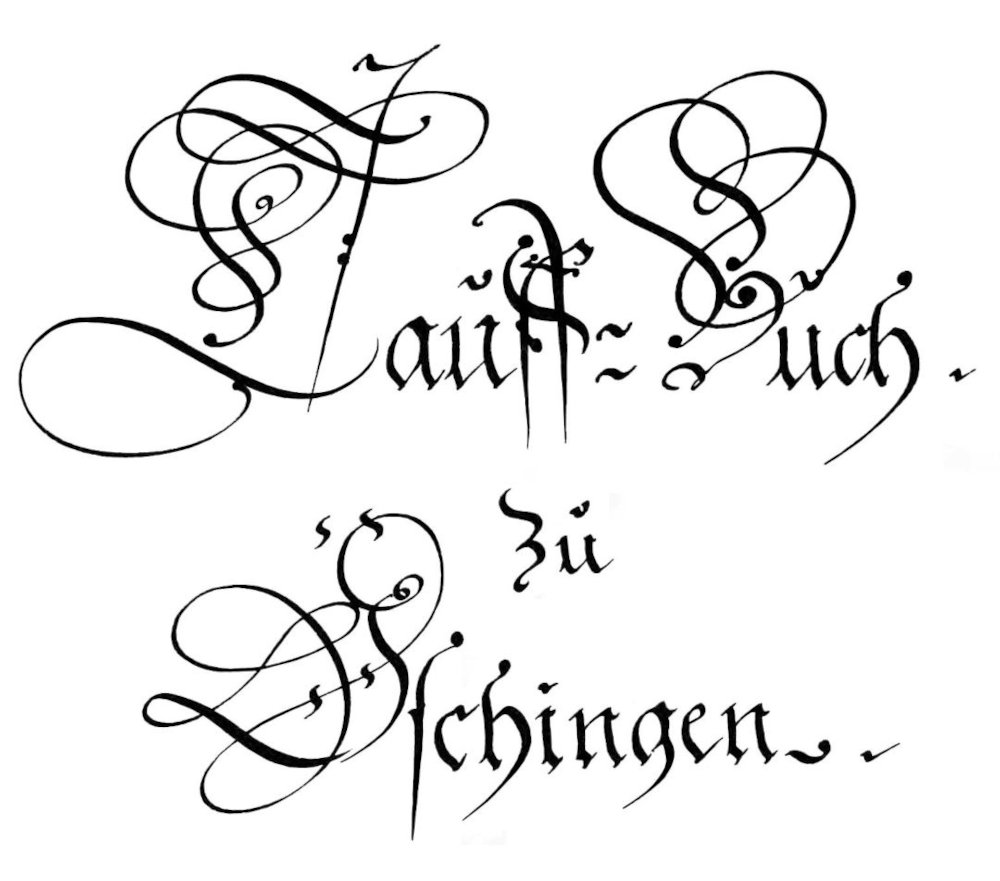 Tauff=Buch.
Zu
Öschingen.